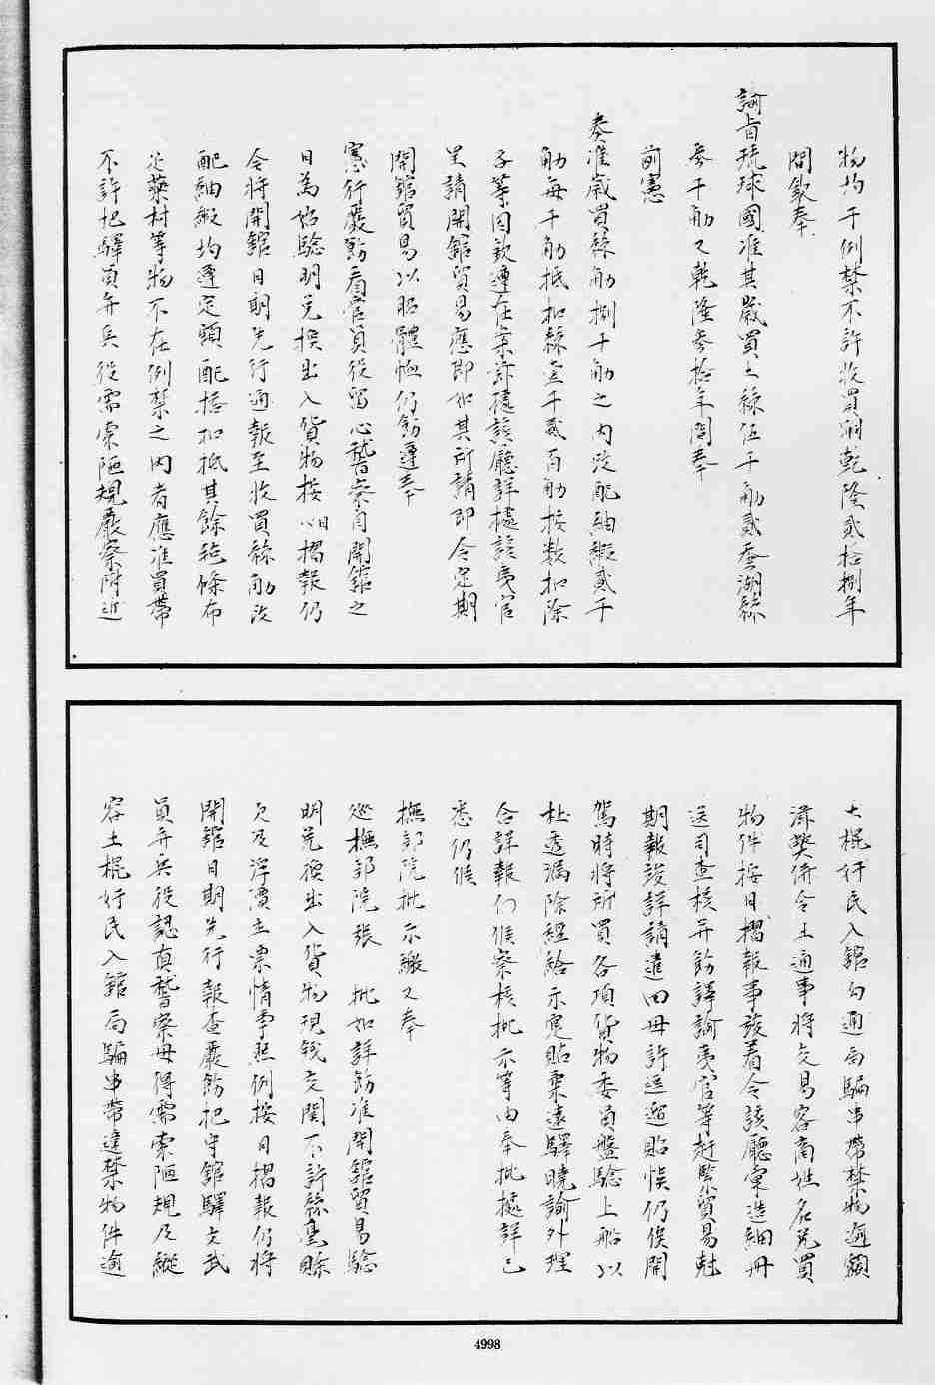 物均干例禁不許收買嗣乾隆貳拾捌年
間欽奉
諭旨琉球國准其歲買土絲伍千觔貳蚕湖絲
叁千觔又乾隆叁拾年間奉
前憲
奏准歲買絲觔捌千觔之内改配紬緞貳千
觔每千觔抵扣絲壹千貳百觔按数扣除
等因欽遵在案茲據該廳詳據該夷官
呈請開舘貿易應即如其所請即令定期
開舘貿易以昭體恤仍飭遵奉
憲行嚴飭看官員役留心稽查自開舘之
日為始驗明兑換出入貨物按日摺報仍
令將開舘日期先行通報至收買絲觔改
配紬緞均遵定額配搭扣抵其餘毡條布
疋藥材等物不在例禁之内者應准買帶
不許把驛員弁兵役需索陋規嚴察附近
土棍奸民入舘勾通局騙串帶禁物逾額
滋弊併令土通事將交易客商姓名兑買
物件按日摺報事竣着令該廳彙造細冊
送司查核并飭譯諭夷官等赶緊貿易尅
期報竣詳請遣回毋許逗遛貽悞仍俟開
駕時將所買各項貨物委員盤驗上船以
杜透漏除經給示寔貼柔遠驛曉諭外理
合詳報仍候察核批示等由奉批據詳已
悉仍候
撫部院批示繳又奉
巡撫部院張 批如詳飭准開舘貿易驗
明兑換出入貨物現錢交関不許絲毫賒
欠及浮濳立票情事照例按日摺報仍將
開舘日期先行報查嚴飭把守舘驛文武
員弁兵役認真稽察毋得需索陋規及縱
容土棍奸民入舘局騙串帶違禁物件逾
4998